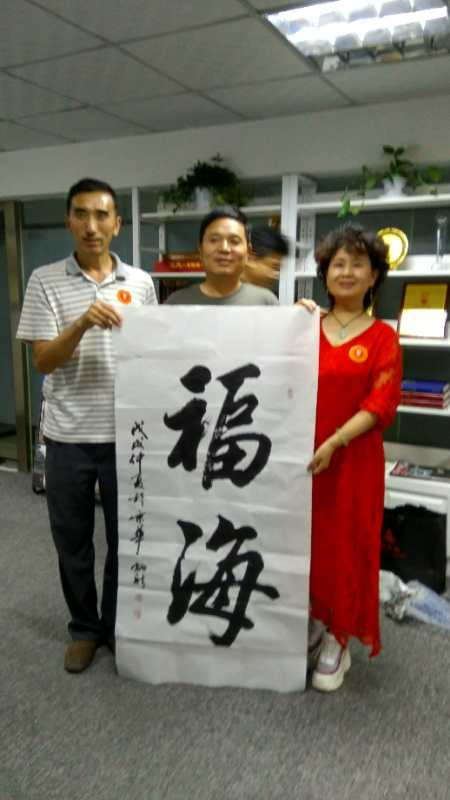 福海
戊戌仲夏於京華